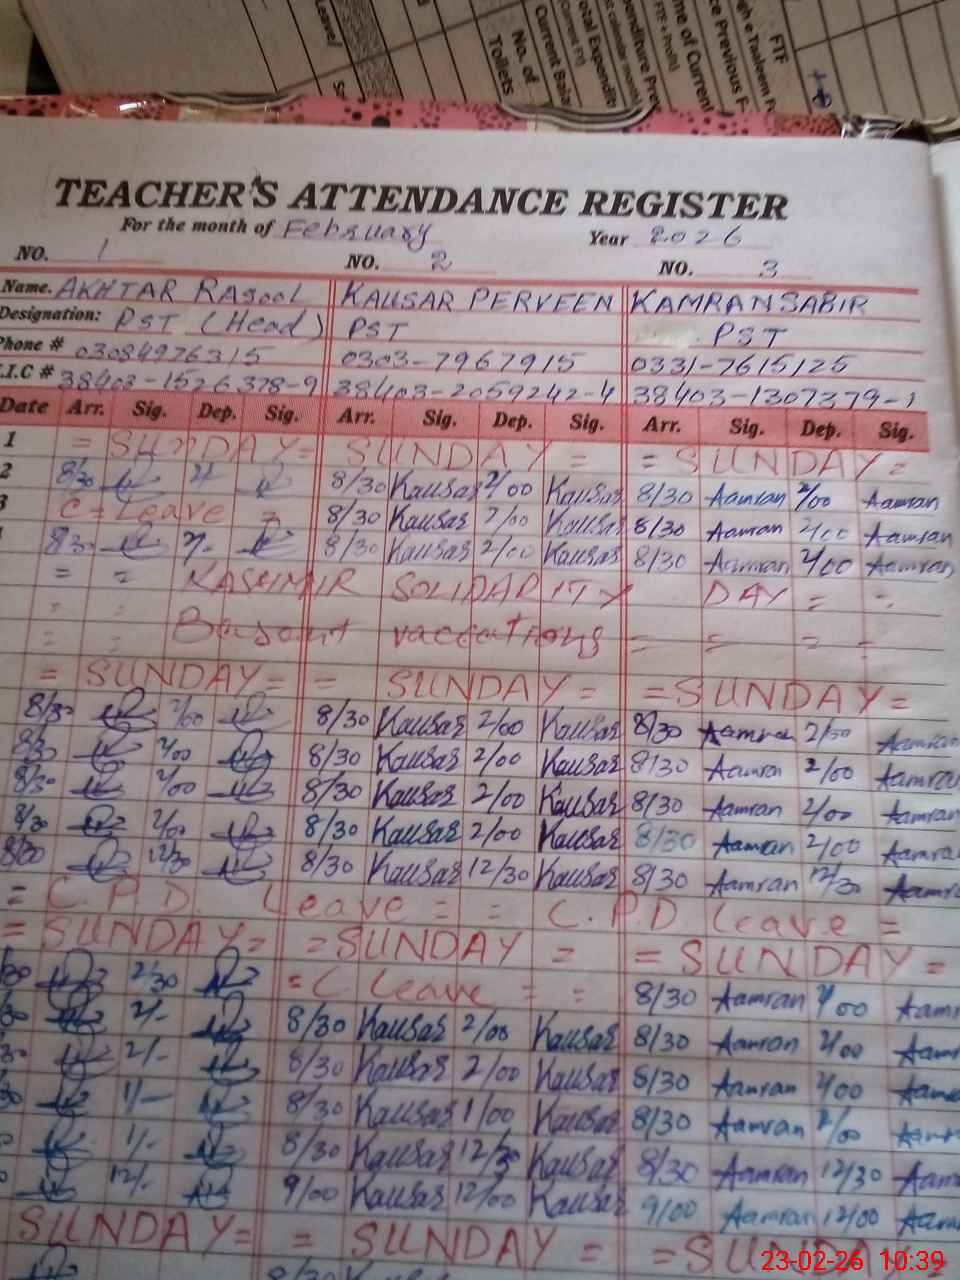 Level
No. of
Toilets
Current Bala
(Current FY)
otal Expenditu
penditure Prev
FTF + Prvis)
me of Current
ce Previous F-
gh e Taleem F
FTF
TEACHER'S ATTENDANCE REGISTER
For the month of February Year 2026
NO. 1 NO. 2 NO. 3
Name. AKHTAR RAsooL KAUSAR PERVEEN KAMRAN SABIR
Designation: PST (Head) PST PST
Phone # 03084976315 0303-7967915 0331-7615125
.I.C # 38403-1526378-9 38403-2059242-4 38403-1307379-1
Date Arr. Sig. Dep. Sig. Arr. Sig. Dep. Sig. Arr. Sig. Dep. Sig.
1 = SUNDAY = SUNDAY = = SUNDAY =
2 8/30 2/ 8/30 Kausar 2/00 Kausar 8/30 Aamran 2/00 Aamran
3 C = Leave = 8/30 Kausar 2/00 Kausar 8/30 Aamran 2/00 Aamran
83- 2/- 8/30 Kausar 2/00 Kausar 8/30 Aamran 2/00 Aamran
= = KASHMIR SOLIDARITY DAY = -
= = Basant vaccations = = = =
= SUNDAY = = SUNDAY = = SUNDAY =
8/30 2/00 8/30 Kausar 2/00 Kausar 8/30 Aamran 2/00 Aamran
8/30 2/00 8/30 Kausar 2/00 Kausar 8/30 Aamran 2/00 Aamran
8/30 2/00 8/30 Kausar 2/00 Kausar 8/30 Aamran 2/00 Aamran
8/30 2/00 8/30 Kausar 2/00 Kausar 8/30 Aamran 2/00 Aamra
8/30 12/30 8/30 Kausar 12/30 Kausar 8/30 Aamran 12/30 Aamra
= C.P.D. Leave = = C.P.D Leave =
= SUNDAY = = SUNDAY = = SUNDAY =
/30 2/30 = C Leave = = 8/30 Aamran 2/00 Aamr
30 2/- 8/30 Kausar 2/00 Kausar 8/30 Aamran 2/00 Aamr
30 2/- 8/30 Kausar 2/00 Kausar 8/30 Aamran 2/00 Aam
30 1/- 8/30 Kausar 1/00 Kausar 8/30 Aamran 2/00 Aam
1/- 8/30 Kausar 12/30 Kausar 8/30 Aamran 12/30 Aam
12/- 9/00 Kausar 12/00 Kausar 9/00 Aamran 12/00 Aam
SUNDAY = = SUNDAY = = SUNDAY
8/30
23-02-26 10:39